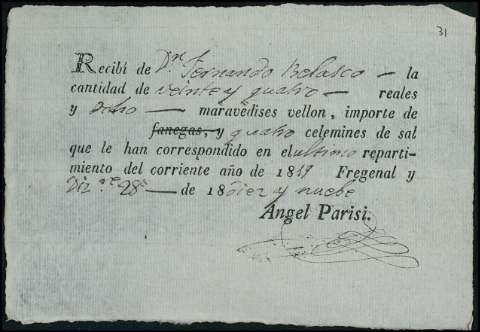 31
Recibí de Dn. Fernando Belasco — la
cantidad de veinte y quatro — reales
y ocho — maravedises vellon, importe de
fanegas, y quatro celemines de sal
que le han correspondido en el ultimo reparti-
miento del corriente año de 1819 Fregenal y
Diz.re 28 — de 18 diez y nuebe
Angel Parisi.